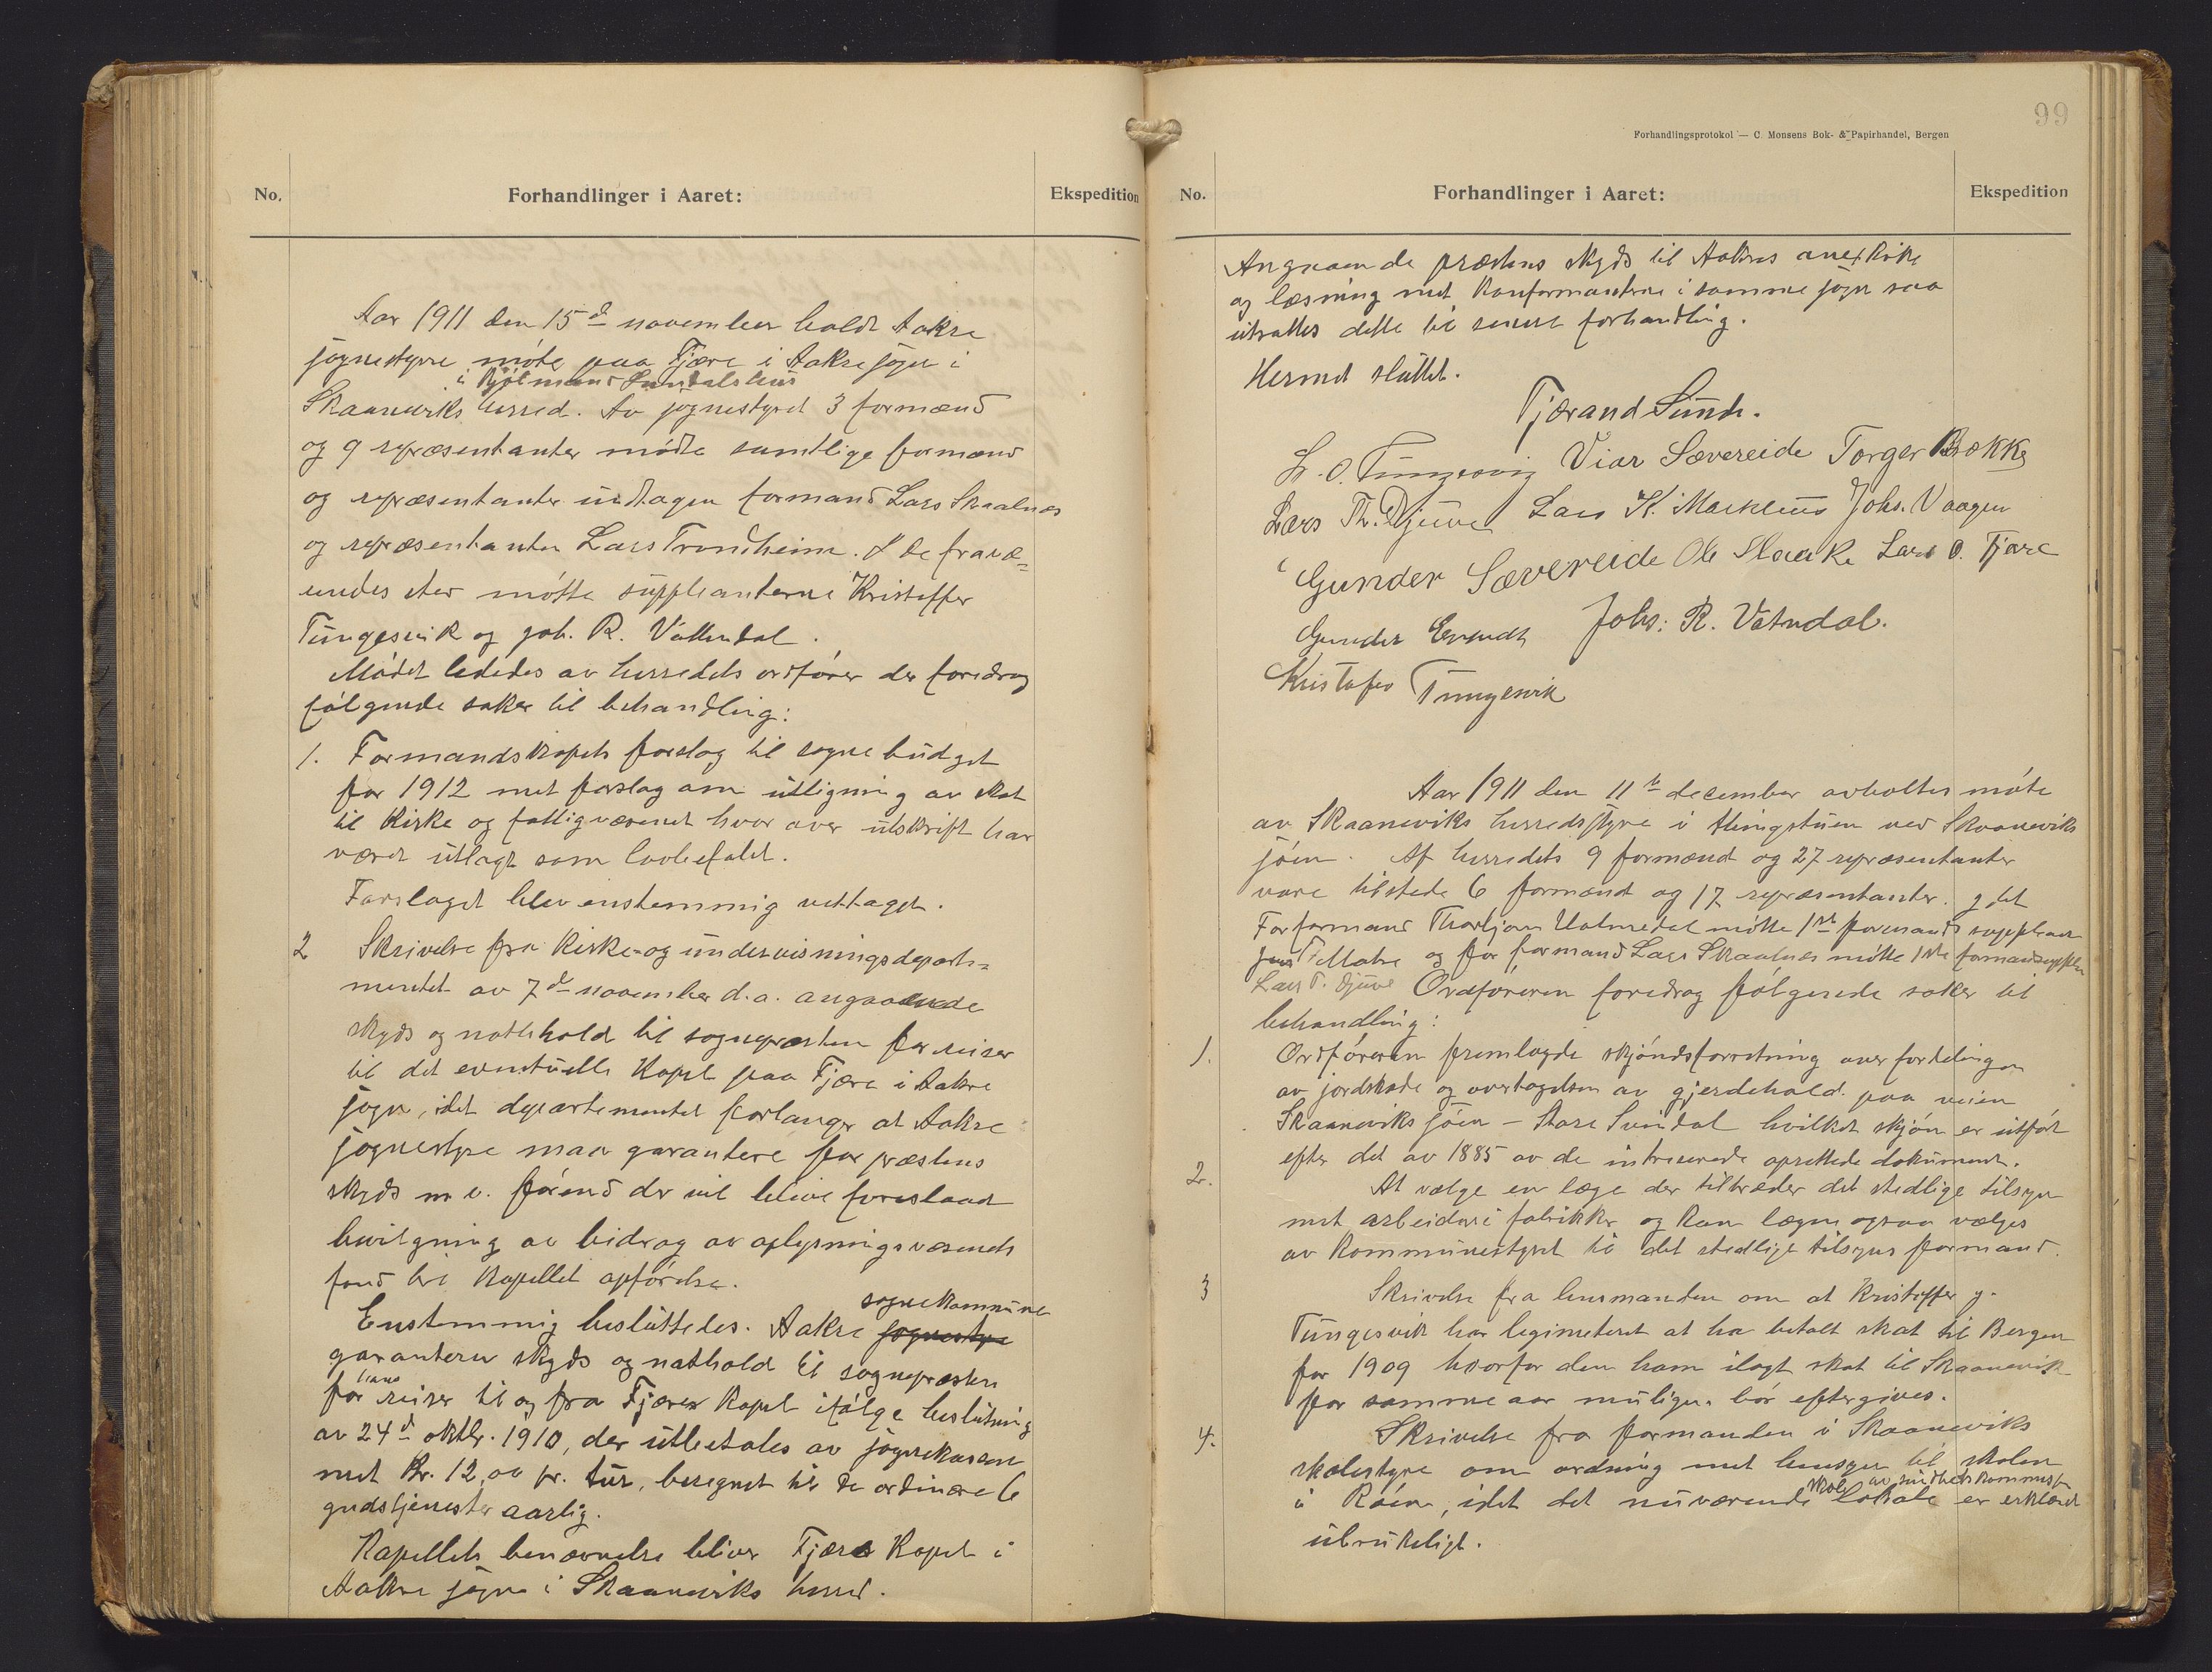 No.
Forhandlinger i Aaret:
Ekspedition
Aar 1911 den 15d november holdt Aakre
sognestyre møte paa Fjære i Aakre sogn i
i Rjølmand Sundalshus
Skaaneviks herred. Av sognestyret 3 formænd
og 9 repræsentanter mødte samtlige formænd
og repræsentanter undtagen formand Lars Skaalnes
og repræsentanten Lars Trondheim. I de fravæ=
rendes sted møtte suppleanterne Kristoffer
Tungesvik og Joh. R. Vattendal.
Mødet lededes av herredets ordfører der foredrog
følgende saker til behandling:
1. Formandskapets forslag til sognebudget
for 1912 med forslag om utligning av skat
til kirke og fattigvæsenet hvor over utskrift har
været utlagt som lovbefalet.
Forslaget blev enstemmig vedtaget.
2 Skrivelse fra kirke- og undervisningsdeparte=
mentet av 7d november d.a. angaaende
skyds og nattehold til sognepresten for reiser
til det eventuelle kapel paa Fjære i Aakre
sogn, idet departementet forlanger at Aakre
sognestyre maa garantere for prestens
skyds m.v. førend der vil blive foreslaaet
bevilgning av bidrag av oplysningsvæsenets
fond til kapellet opførelse.
Enstemmig besluttedes. Aakre sognestyre
sognekommune
garanterer skyds og nathold til sognepresten
for hans reiser til og fra Fjære kapel ifølge beslutning
av 24d oktbr. 1910, der utbetales av sognekassen
med Kr. 12,00 pr. tur, beregnet til de ordinære 6
gudstjenester aarlig.
Kapellets benævnelse bliver Fjære Kapel i
Aakre sogn i Skaaneviks herred.
99
Forhandlingsprotokol — C. Monsens Bok- & Papirhandel, Bergen
No.
Forhandlinger i Aaret:
Ekspedition
Angaaende præstens skyds til Aakres anexkirke
og læsning med konfirmanterne i samme sogn saa
utsattes dette til senere forhandling.
Hermed sluttet.
Tjærand Sunde.
L. O. Tungesvig Viar Sævereide Torger Bække
Lars Th. Djuve Lars K. Markhus Johs. Vaagen
Gunder Sævereide Ole Slaake Lars O. Fjære
Gunder Johs: R. Vatndal.
Kristofer Tungesvik
Aar 1911 den 11te december avholtes møte
av Skaaneviks herredsstyre i thingstuen ved Skaaneviks
sjøen. Af herredets 9 formænd og 27 repræsentanter
vare tilstede 6 formænd og 17 repræsentanter. I det
For formand Thorbjørn Valmedal møtte 1ste formands supplean
Jens T. Matre og for formand Lars Skaalnes møtte 1ste formandssupplean
Lars T. Djuve Ordføreren foredrog følgende saker til
behandling:
1. Ordføreren fremlagde skjøndsforretning over fordelingen
av jordskade og overtagelsen av gjerdehold paa veien
Skaaneviksjøen – Store Svindal hvilket skjøn er utført
efter det av 1885 av de intreserede oprettede dokument.
2. At vælge en læge der tiltræder det stedlige tilsyn
med arbeidere i fabrikker og kan lægen ogsaa vælges
av kommunestyret til det stedlige tilsyns formand.
3 Skrivelse fra lensmanden om at Kristoffer G.
Tungesvik har legimeteret at ha betalt skat til Bergen
for 1909 hvorfor den ham ilagt skat til Skaanevik
for samme aar muligens bør eftergives.
4. Skrivelse fra formanden i Skaaneviks
skolestyre om ordning med hensyn til skolen
skole av sundhetskommisjon
i Røen, idet det nuværende lokale er erklæret
ubrukeligt.